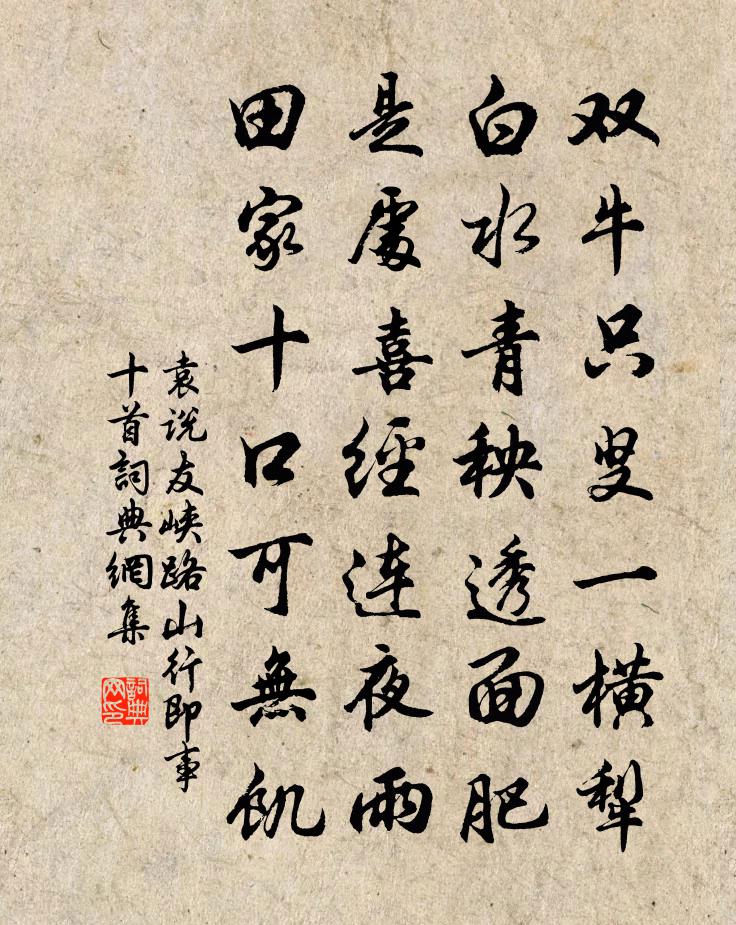 双牛只叟一横犁
白水青秧透面肥
是處喜經連夜雨
田家十口可無飢
袁说友峡路山行即事
十首詞典網集
詞典网印